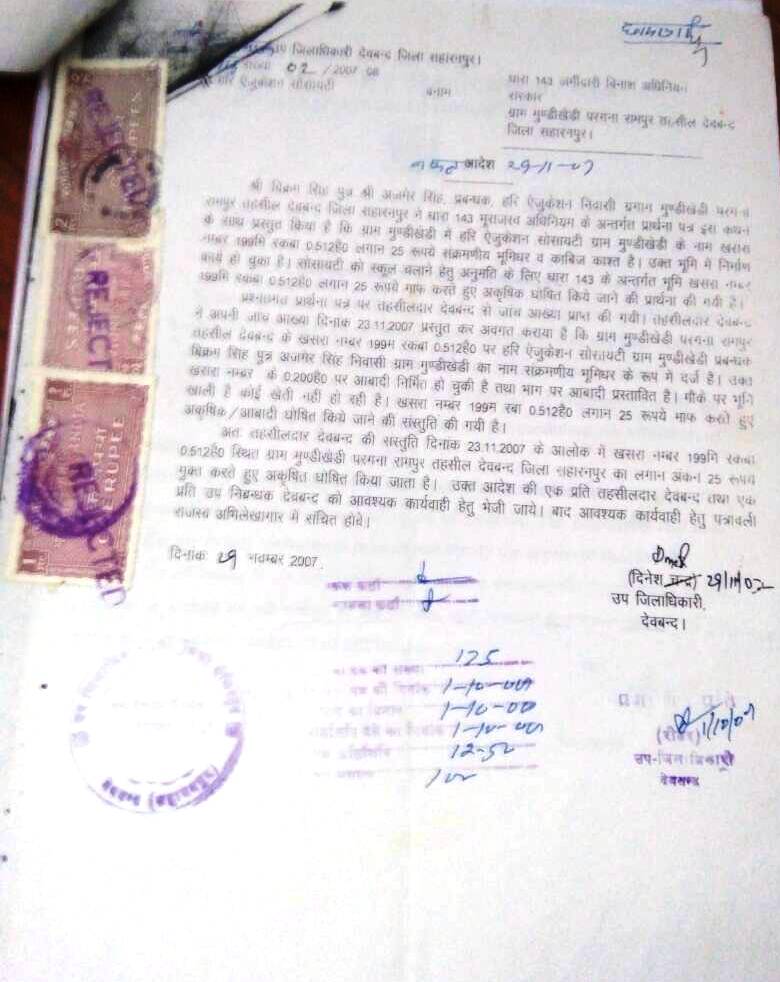 उप जिलाधिकारी देवबन्द जिला सहारनपुर।
संख्या 02/2007 08
हरि ऐजुकेशन सोसायटी
बनाम
धारा 143 जमींदारी विनाश अधिनियम
सरकार
ग्राम मुण्डीखेडी परगना रामपुर तहसील देवबन्द
जिला सहारनपुर।
नकल आदेश 29-11-07
श्री विक्रम सिंह पुत्र श्री अजमेर सिंह, प्रबन्धक, हरि ऐजुकेशन निवासी ग्राम मुण्डीखेडी परगना
रामपुर तहसील देवबन्द जिला सहारनपुर ने धारा 143 भूराजस्व अधिनियम के अन्तर्गत प्रार्थना पत्र इस कथन
के साथ प्रस्तुत किया है कि ग्राम मुण्डीखेडी में हरि ऐजुकेशन सोसायटी ग्राम मुण्डीखेडी के नाम खसरा
नम्बर 199मि रकबा 0.512है0 लगान 25 रूपये संक्रमणीय भूमिधर व काबिज काश्त है। उक्त भूमि में निर्माण
कार्य हो चुका है। सोसायटी को स्कूल चलाने हेतु अनुमति के लिए धारा 143 के अन्तर्गत भूमि खसरा नम्बर
199मि रकबा 0.512है0 लगान 25 रूपये माफ करते हुए अकृषिक घोषित किये जाने की प्रार्थना की गयी है।
प्रश्नगत प्रार्थना पत्र पर तहसीलदार देवबन्द से जांच आख्या प्राप्त की गयी। तहसीलदार देवबन्द
ने अपनी जांच आख्या दिनांक 23.11.2007 प्रस्तुत कर अवगत कराया है कि ग्राम मुण्डीखेडी परगना रामपुर
तहसील देवबन्द के खसरा नम्बर 199म रकबा 0.512है0 पर हरि ऐजुकेशन सोसायटी ग्राम मुण्डीखेडी प्रबन्धक
विक्रम सिंह पुत्र अजमेर सिंह निवासी ग्राम मुण्डीखेडी का नाम संक्रमणीय भूमिधर के रूप में दर्ज है। उक्त
खसरा नम्बर के 0.200है0 पर आबादी निर्मित हो चुकी है तथा भाग पर आबादी प्रस्तावित है। मौके पर भूमि
खाली है कोई खेती नही हो रही है। खसरा नम्बर 199म रबा 0.512है0 लगान 25 रूपये माफ करते हुए
अकृषिक/आबादी घोषित किये जाने की संस्तुति की गयी है।
अतः तहसीलदार देवबन्द की संस्तुति दिनांक 23.11.2007 के आलोक में खसरा नम्बर 199मि रकबा
0.512है0 स्थित ग्राम मुण्डीखेडी परगना रामपुर तहसील देवबन्द जिला सहारनपुर का लगान अंकन 25 रूपये
मुक्त करते हुए अकृषित घोषित किया जाता है। उक्त आदेश की एक प्रति तहसीलदार देवबन्द तथा एक
प्रति उप निबन्धक देवबन्द को आवश्यक कार्यवाही हेतु भेजी जाये। बाद आवश्यक कार्यवाही हेतु पत्रावली
राजस्व अभिलेखागार में संचित होवे।
दिनांक 29 नवम्बर 2007.
(दिनेश चन्द्र) 29/11/07
उप जिलाधिकारी,
देवबन्द।
125
1-10-09
1-10-09
1-10-09
12-50
1/10/09
उप-जिलाधिकारी
देवबन्द
REJECTED
REJECTED
REJECTED
INDIA
RUPEE